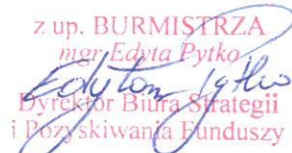 z up. BURMISTRZA
mgr Edyta Pytko
Dyrektor Biura Strategii
i Pozyskiwania Funduszy